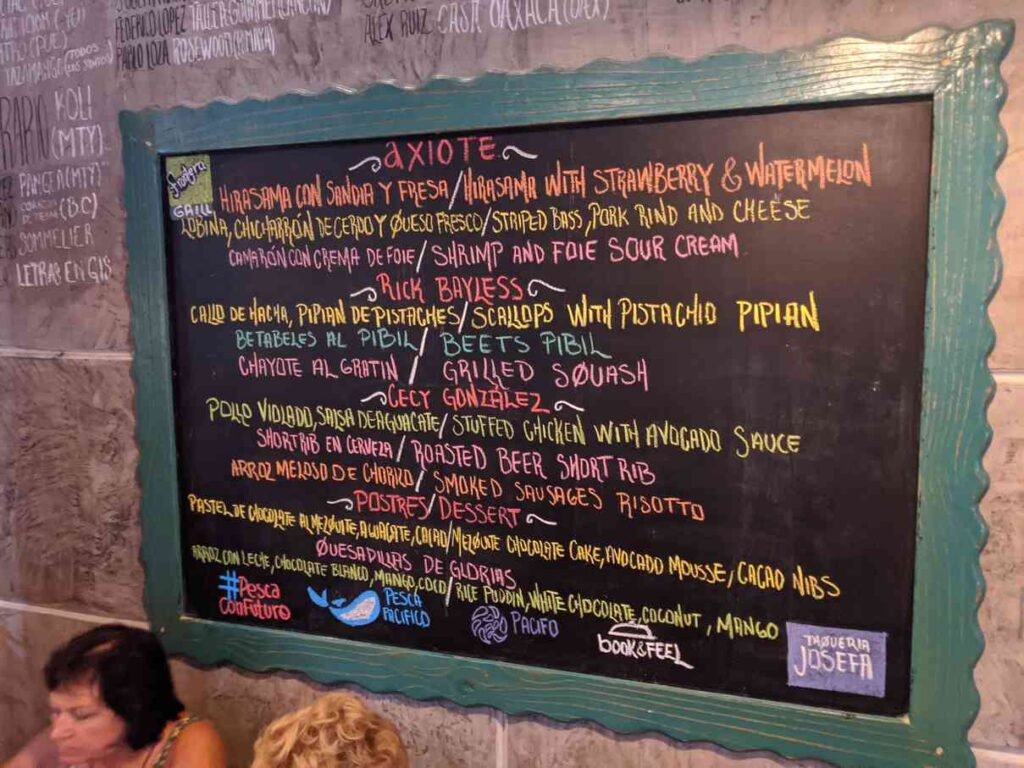 FEDERICO LOPEZ TAUIT
PABLO LOZA ROSEWOOD
ALEX RUIZ CASA OAXACA (OAX)
KOLI
(MTY)
PANGEA (MTY)
(BC)
SOMMELIER
LETRAS EN GIS
frontera
GRILL
AXIOTE
HIRASAMA CON SANDIA Y FRESA/HIRASAMA WITH STRAWBERRY & WATERMELON
LOBINA, CHICHARRÓN DE CERDO Y QUESO FRESCO/STRIPED BASS, PORK RIND AND CHEESE
CAMARÓN CON CREMA DE FOIE/SHRIMP AND FOIE SOUR CREAM
RICK BAYLESS
CALLO DE HACHA, PIPIAN DE PISTACHES/SCALLOPS WITH PISTACHIO PIPIAN
BETABELES AL PIBIL/BEETS PIBIL
CHAYOTE AL GRATIN/GRILLED SQUASH
CECY GONZÁLEZ
POLLO VIOLADO, SALSA DE AGUACATE/STUFFED CHICKEN WITH AVOCADO SAUCE
SHORT RIB EN CERVEZA/ROASTED BEER SHORT RIB
ARROZ MELOSO DE CHORIZO/SMOKED SAUSAGES RISOTTO
POSTRES/DESSERT
PASTEL DE CHOCOLATE AL MEZQUITE, AGUACATE, CACAO/MEZQUITE CHOCOLATE CAKE, AVOCADO MOUSSE, CACAO NIBS
QUESADILLAS DE GLORIAS
ARROZ CON LECHE, CHOCOLATE BLANCO, MANGO, COCO/RICE PUDDIN, WHITE CHOCOLATE, COCONUT, MANGO
#Pesca
ConFuturo
PESCA
PACIFICO
PACIFO
book&FEEL
TAQUERIA
JOSEFA